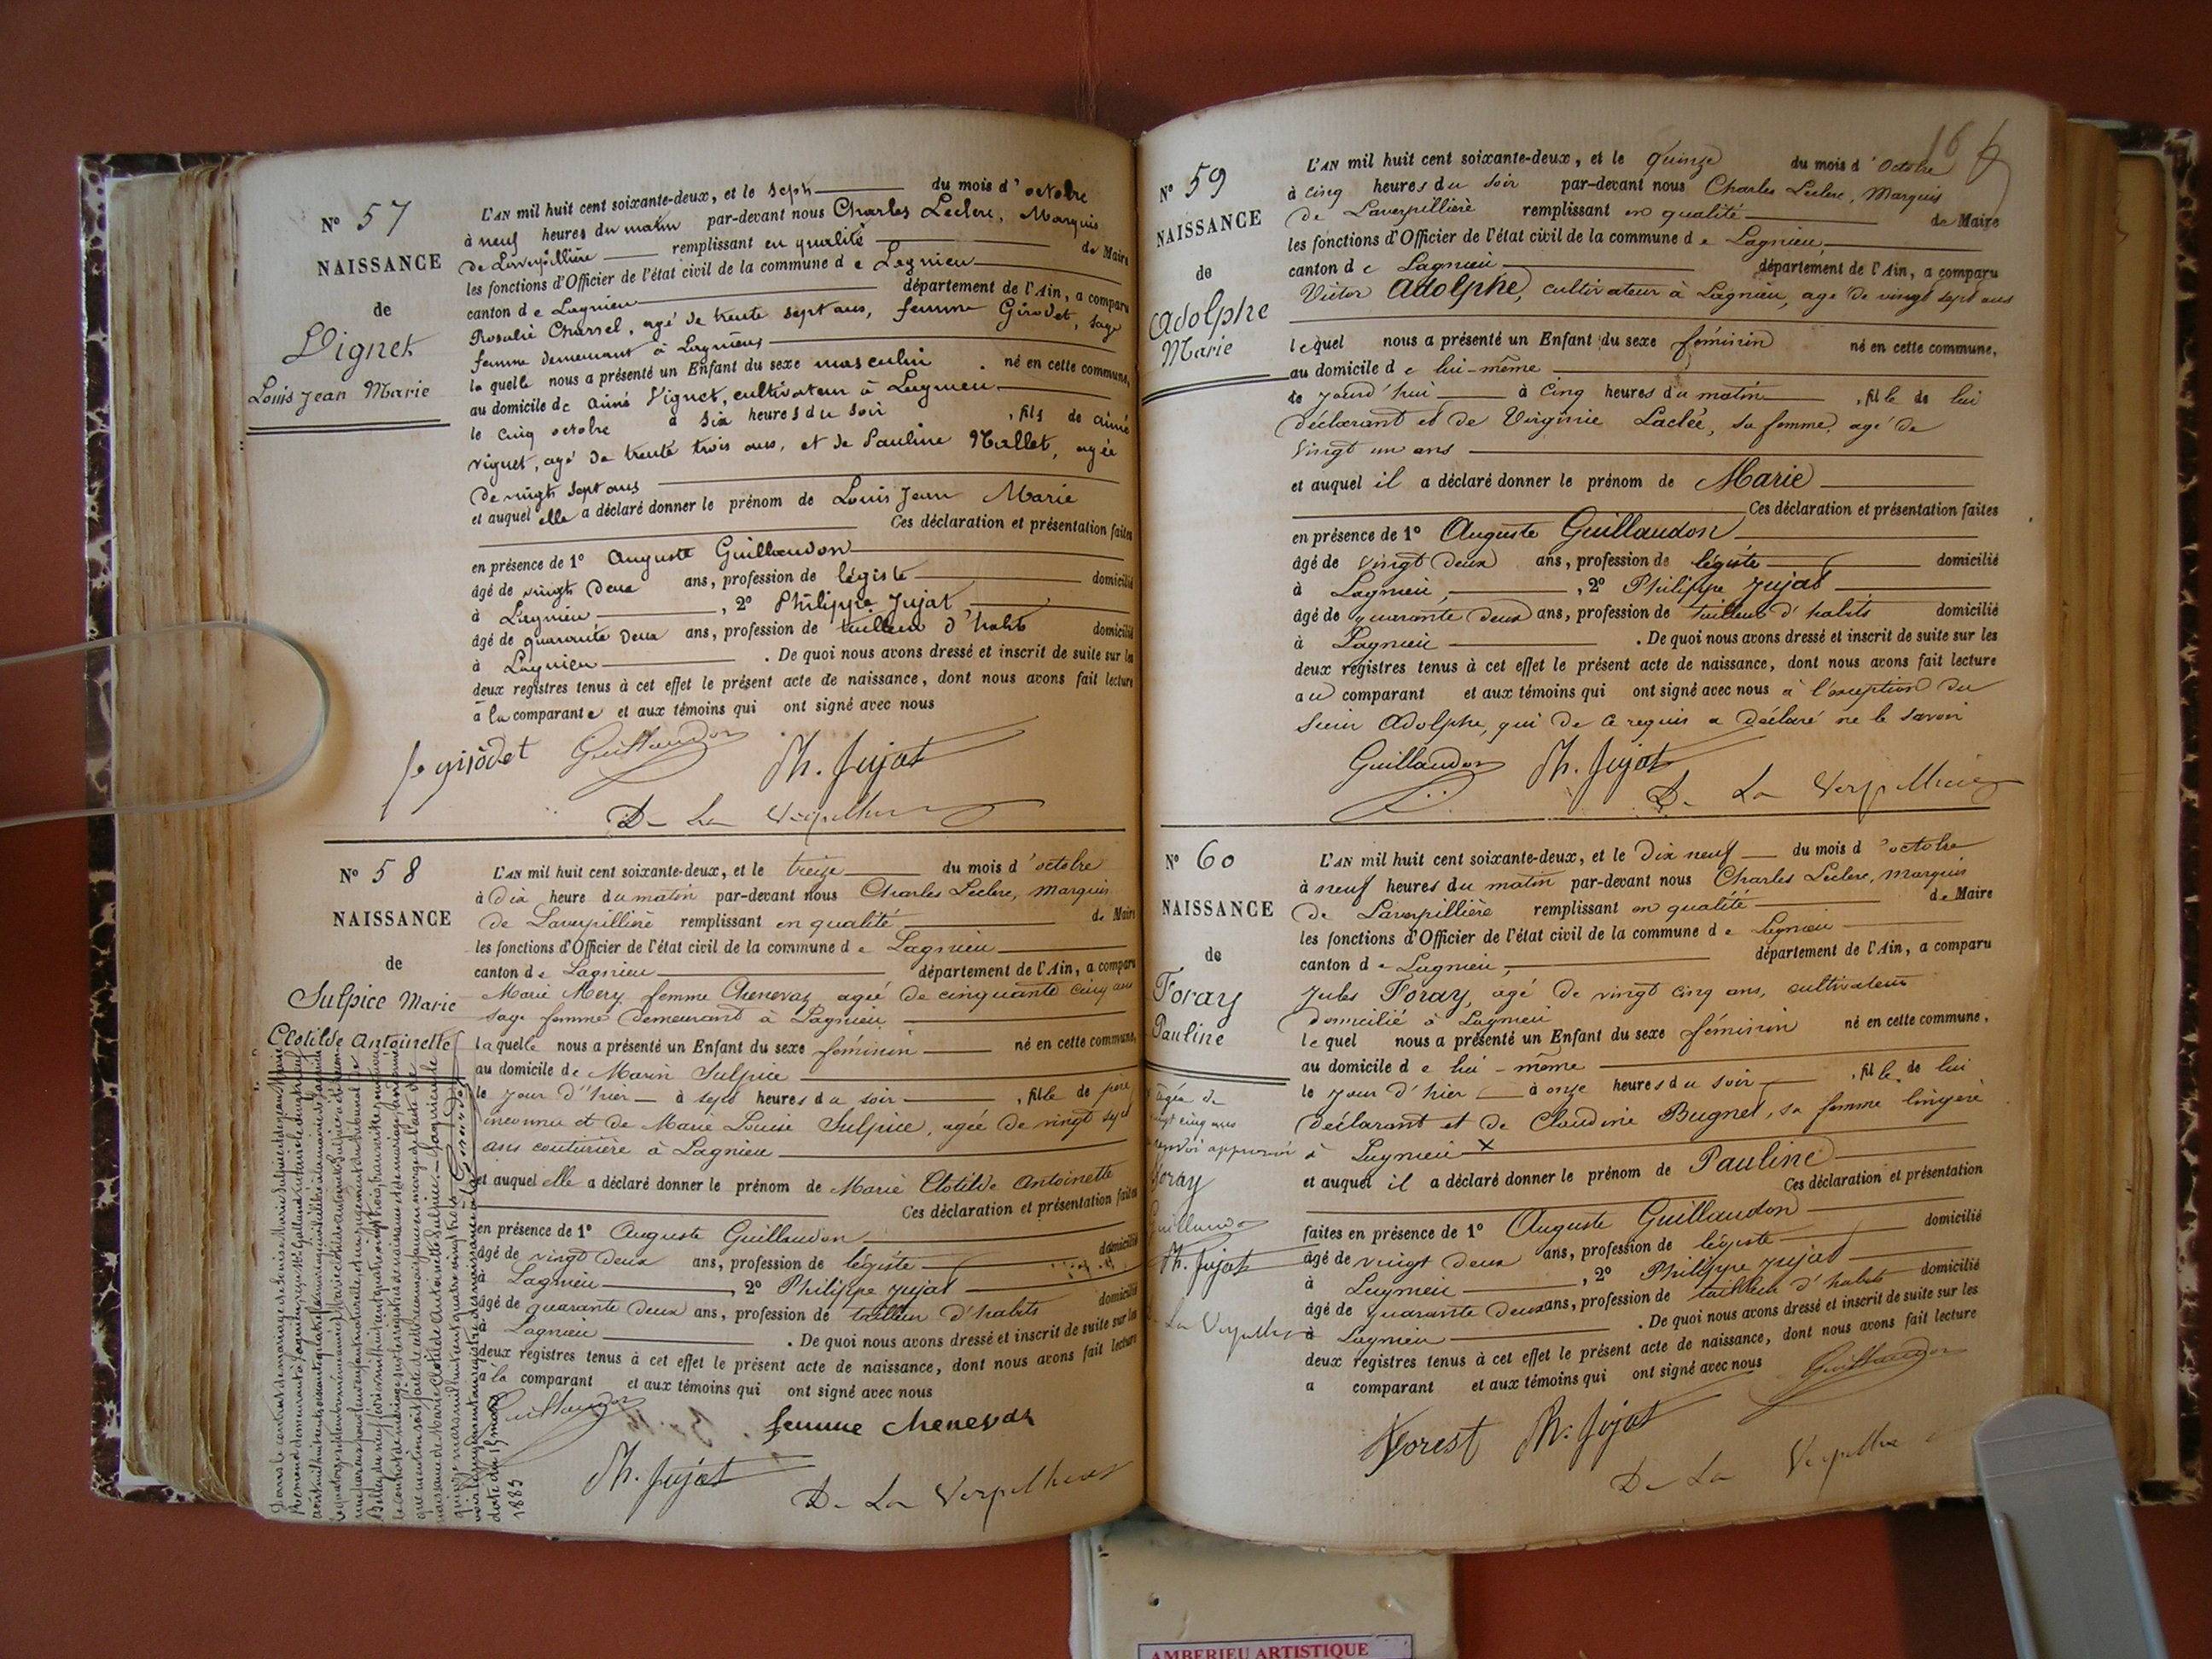 N° 57
NAISSANCE
de
Vignet
Louis Jean Marie
L'AN mil huit cent soixante-deux, et le sept du mois d'octobre
à neuf heures du matin par-devant nous Charles Leclerc, Marquis
de Laverpillière remplissant en qualité de Maire
les fonctions d'Officier de l'état civil de la commune de Lagnieu
canton de Lagnieu département de l'Ain, a comparu
Rosalie Charvel, agé de trente sept ans, femme Girodet, sage
femme demeurant à Lagnieu
laquelle nous a présenté un Enfant du sexe masculin né en cette commune,
au domicile de aimé Vignet, cultivateur à Lagnieu
le cinq octobre à six heures du soir, fils de aimé
vignet, agé de trente trois ans, et de Pauline Mallet, agée
de vingt sept ans
et auquel elle a déclaré donner le prénom de Louis Jean Marie
Ces déclaration et présentation faites
en présence de 1° Auguste Guillaudon
âgé de vingt deux ans, profession de légiste domicilié
à Lagnieu, 2° Philippe Jujat
âgé de quarante deux ans, profession de tailleur d'habits domicilié
à Lagnieu. De quoi nous avons dressé et inscrit de suite sur les
deux registres tenus à cet effet le présent acte de naissance, dont nous avons fait lecture
à la comparante et aux témoins qui ont signé avec nous
fe girodet Guillaudon Ph. Jujat
De La Verpilliere
N° 58
NAISSANCE
de
Sulpice Marie
Clotilde Antoinette
L'AN mil huit cent soixante-deux, et le treize du mois d'octobre
à dix heure du matin par-devant nous Charles Leclerc, marquis
de Laverpillière remplissant en qualité de Maire
les fonctions d'Officier de l'état civil de la commune de Lagnieu
canton de Lagnieu département de l'Ain, a comparu
Marie Mery femme Chenevaz, agée de cinquante cinq ans
sage femme demeurant à Lagnieu
laquelle nous a présenté un Enfant du sexe féminin né en cette commune,
au domicile de Marin Sulpice
le jour d'hier à sept heures du soir, fille de père
inconnu et de Marie Louise Sulpice, agée de vingt sept
ans couturière à Lagnieu
et auquel elle a déclaré donner le prénom de Marie Clotilde Antoinette
Ces déclaration et présentation faites
en présence de 1° Auguste Guillaudon
âgé de vingt deux ans, profession de légiste domicilié
à Lagnieu, 2° Philippe Jujat
âgé de quarante deux ans, profession de tailleur d'habits domicilié
à Lagnieu. De quoi nous avons dressé et inscrit de suite sur les
deux registres tenus à cet effet le présent acte de naissance, dont nous avons fait lecture
à la comparant et aux témoins qui ont signé avec nous
Guillaudon femme chenevaz
Ph. Jujat De La Verpilliere
1883
N° 59
NAISSANCE
de
Adolphe
Marie
L'AN mil huit cent soixante-deux, et le quinze du mois d'Octobre
à cinq heures du soir par-devant nous Charles Leclerc, Marquis
de Laverpillière remplissant en qualité de Maire
les fonctions d'Officier de l'état civil de la commune de Lagnieu
canton de Lagnieu département de l'Ain, a comparu
Victor Adolphe, cultivateur à Lagnieu, age de vingt sept ans
lequel nous a présenté un Enfant du sexe féminin né en cette commune,
au domicile de lui-même
le jourd'hui à cinq heures du matin, fille de lui
déclarant et de Virginie Laclée, sa femme, agé de
vingt un ans
et auquel il a déclaré donner le prénom de Marie
Ces déclaration et présentation faites
en présence de 1° Auguste Guillaudon
âgé de vingt deux ans, profession de légiste domicilié
à Lagnieu, 2° Philippe Jujat
âgé de quarante deux ans, profession de tailleur d'habits domicilié
à Lagnieu. De quoi nous avons dressé et inscrit de suite sur les
deux registres tenus à cet effet le présent acte de naissance, dont nous avons fait lecture
au comparant et aux témoins qui ont signé avec nous à l'exception du
sieur Adolphe, qui de ce requis a déclaré ne le savoir
Guillaudon Ph. Jujat
De La Verpilliere
N° 60
NAISSANCE
de
Foray
Pauline
L'AN mil huit cent soixante-deux, et le dix neuf du mois d'octobre
à neuf heures du matin par-devant nous Charles Leclerc, marquis
de Laverpillière remplissant en qualité de Maire
les fonctions d'Officier de l'état civil de la commune de Lagnieu
canton de Lagnieu, département de l'Ain, a comparu
Jules Foray, agé de vingt cinq ans, cultivateur
domicilié à Lagnieu
lequel nous a présenté un Enfant du sexe féminin né en cette commune,
au domicile de lui-même
le jour d'hier à onze heures du soir, fille de lui
déclarant et de Claudine Bugnet, sa femme lingère
à Lagnieu X
et auquel il a déclaré donner le prénom de Pauline
Ces déclaration et présentation
faites en présence de 1° Auguste Guillaudon
âgé de vingt deux ans, profession de légiste domicilié
à Lagnieu, 2° Philippe Jujat
âgé de quarante deux ans, profession de tailleur d'habits domicilié
à Lagnieu. De quoi nous avons dressé et inscrit de suite sur les
deux registres tenus à cet effet le présent acte de naissance, dont nous avons fait lecture
a comparant et aux témoins qui ont signé avec nous Guillaudon
Forest Ph. Jujat
De La Verpilliere
agée de
vingt cinq ans
renvoi approuvé
foray
Guillaudon
Ph. Jujat
La Verpilliere
AMBERIEU ARTISTIQUE